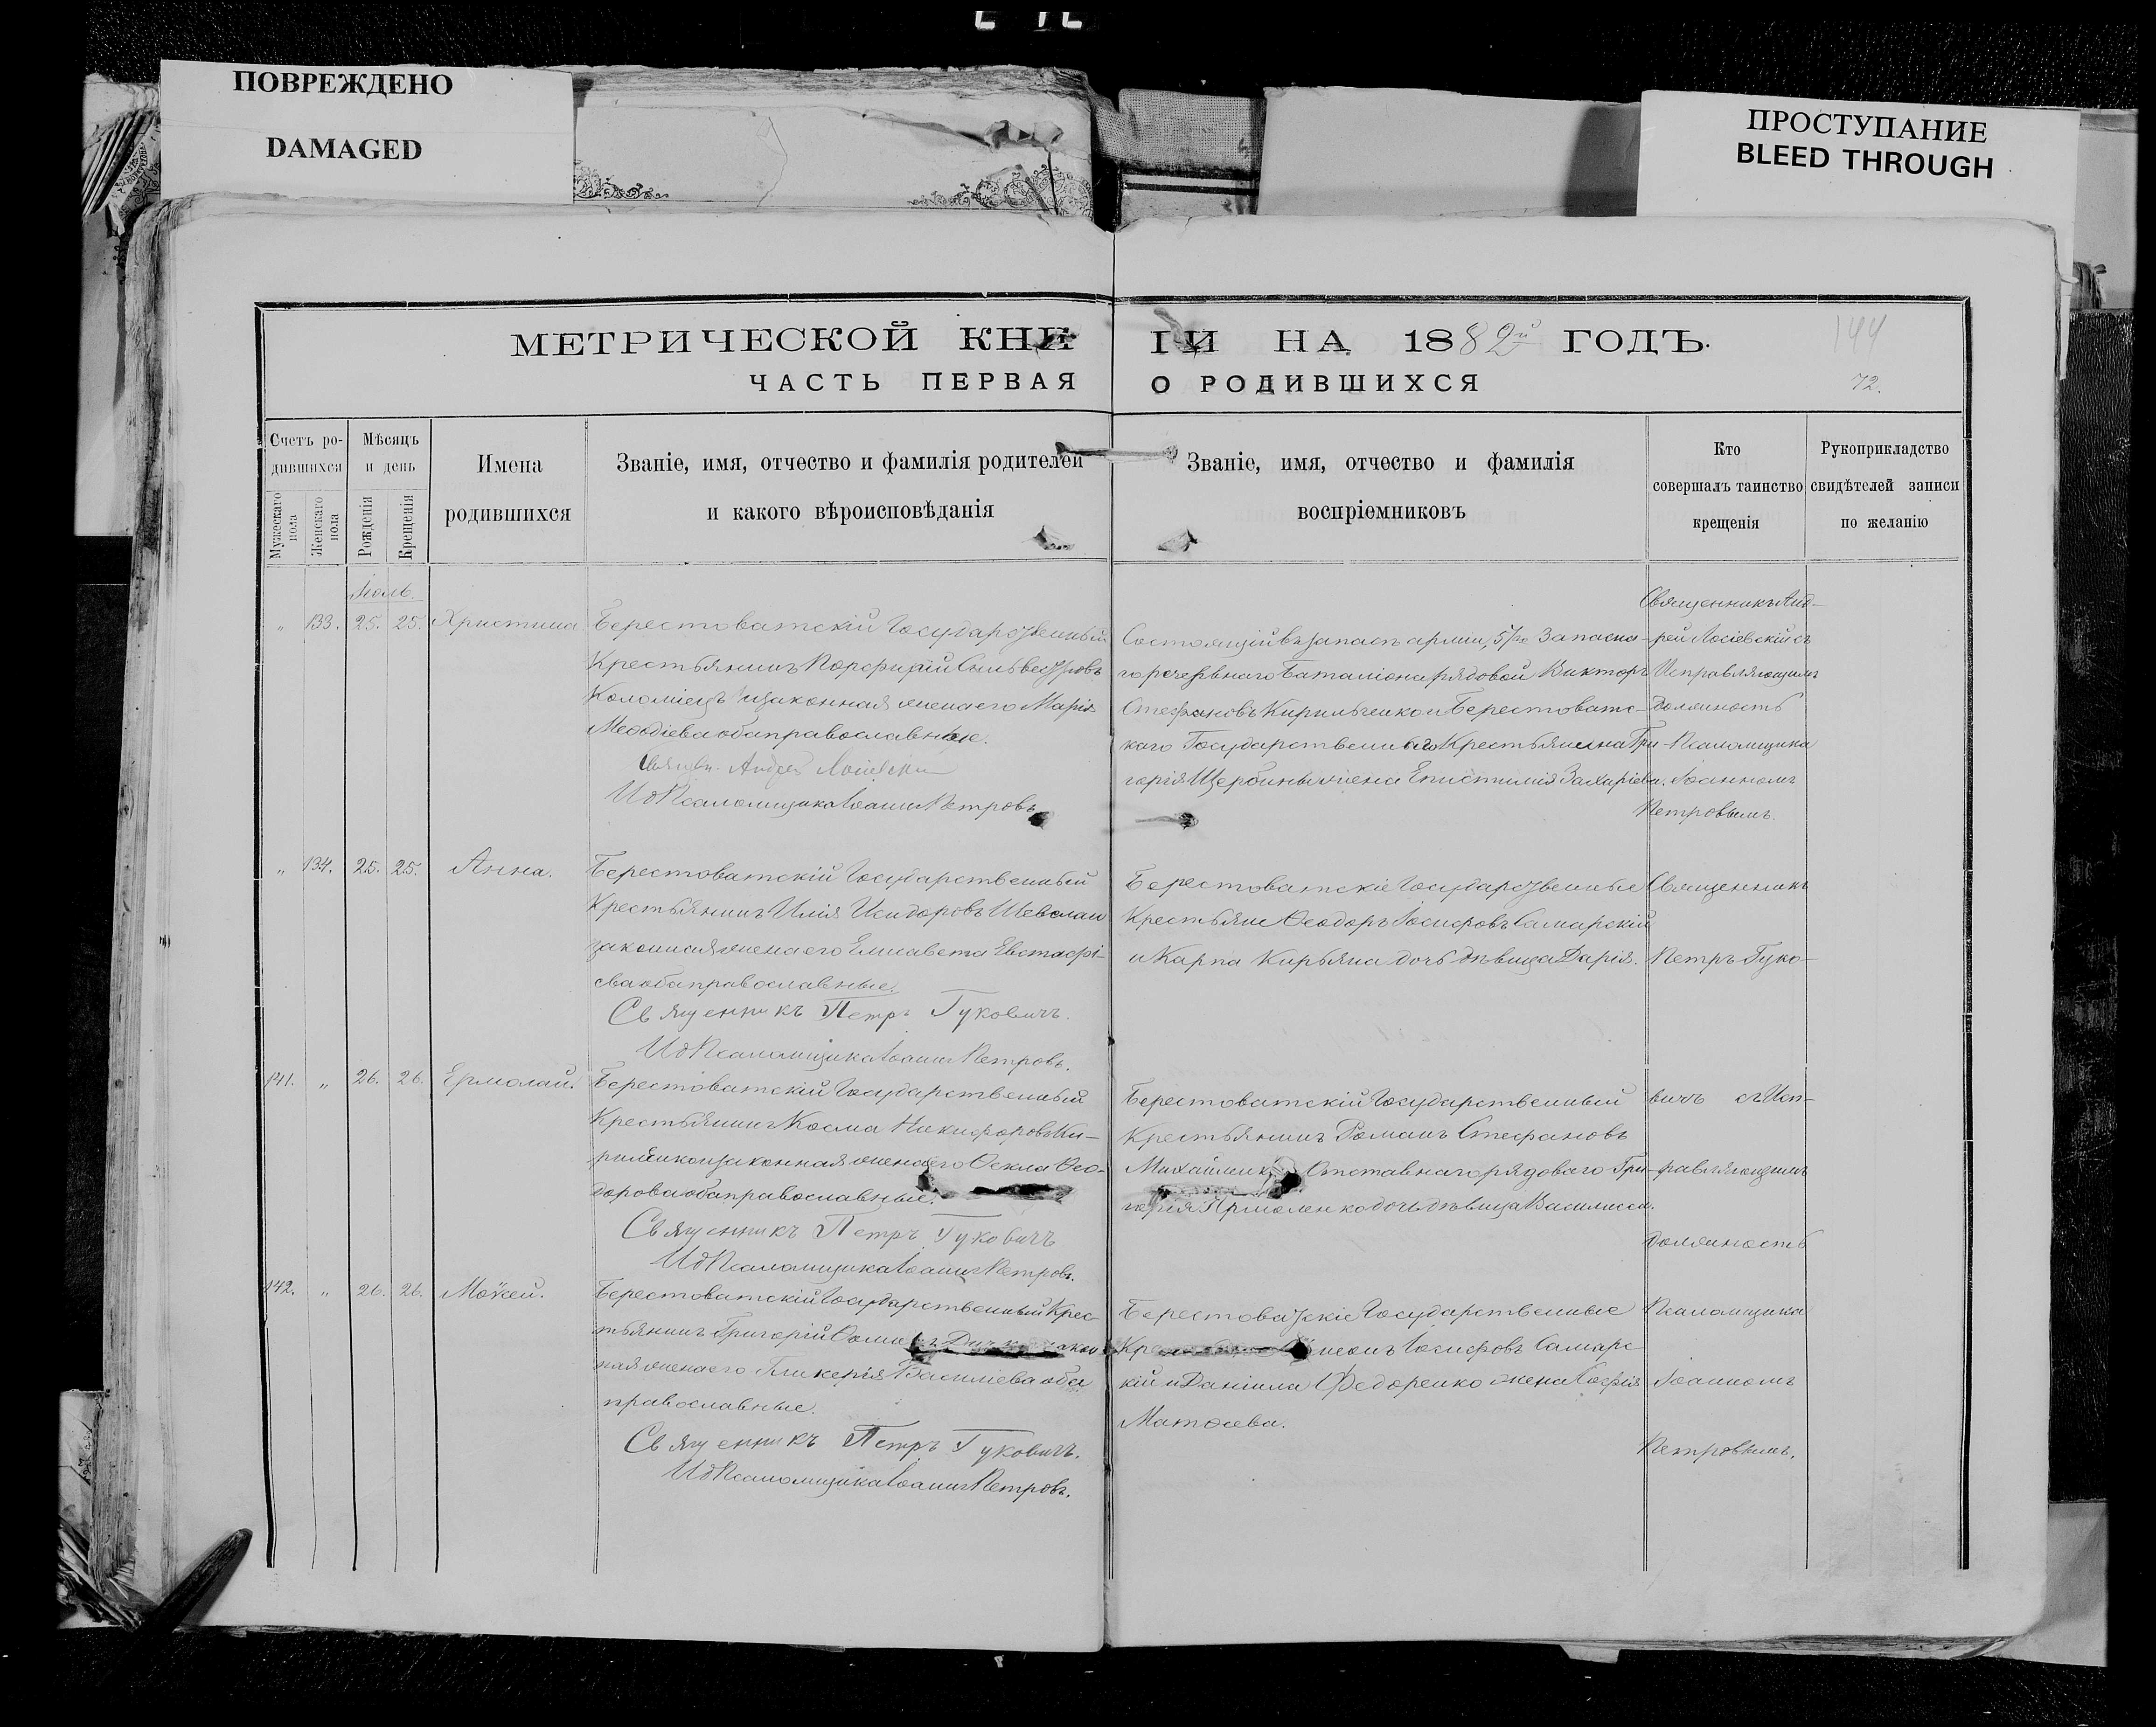 ПОВРЕЖДЕНО
DAMAGED
ПРОСТУПАНИЕ
BLEED THROUGH
МЕТРИЧЕСКОЙ КНИ
ГИ НА 1882й ГОДЪ.
144
ЧАСТЬ ПЕРВАЯ
О РОДИВШИХСЯ
72.
Счетъ ро-
дившихся
Мужескаго пола
Женскаго пола
Мѣсяцъ
и день
Рожденія
Крещенія
Имена
родившихся
Званіе, имя, отчество и фамилія родителей
и какого вѣроисповѣданія
Званіе, имя, отчество и фамилія
воспріемниковъ
Кто
совершалъ таинство
крещенія
Рукоприкладство
свидѣтелей записи
по желанію
Іюль.
„ 133. 25. 25. Христина
Берестоватскій Государственный
Крестьянинъ Порфирій Сильвестровъ
Коломіецъ и законная жена его Марія
Меѳодіева оба православные.
Священ. Андрей Лосіевскій
И д Псаломщика Іоаннъ Петровъ
Состоящій въ запасѣ арміи, запасна-
го резервнаго Баталіона рядовой Викторъ
Стефановъ Кирильченко и Берестоватс-
каго Государственнаго Крестьянина Гри-
горія Щербины жена Епистимія Захаріева.
Священникъ Анд-
рей Лосіевскій съ
Исправляющимъ
должность
Псаломщика
Іоанномъ
Петровымъ.
„ 134. 25. 25. Анна.
Берестоватскій Государственный
Крестьянинъ Илія Исидоровъ
законная жена его Елисавета Евстафі-
ева оба православные.
Священникъ Петръ Гуковичъ.
И д Псаломщика Іоаннъ Петровъ.
Берестоватскіе Государственные
Крестьяне Ѳеодоръ Іосифовъ Самарскій
и Карпа Кирьяна дочь дѣвица Дарія.
Священникъ
Петръ Гуко-
141. „ 26. 26. Ермолай.
Берестоватскій Государственный
Крестьянинъ Косма Никифоровъ Ки-
риленко и законная жена его Ѳекла Ѳео-
дорова оба православные.
Священникъ Петръ Гуковичъ
И д Псаломщика Іоаннъ Петровъ.
Берестоватскій Государственный
Крестьянинъ Романъ Стефановъ
Михайленко Отставнаго рядоваго Гри-
горія Ярмоленко дочь дѣвица Василисса.
вичъ съ Исп-
равляющимъ
должность
142. „ 26. 26. Моѵсей.
Берестоватскій Государственный Крес-
тьянинъ Григорій Ѳоминъ
ная жена его Гликерія Василіева оба
православные.
Священникъ Петръ Гуковичъ.
И д Псаломщика Іоаннъ Петровъ.
Берестоватскіе Государственные
Іосифовъ Самарс-
кій и Даніила Федоренко жена Софія
Матѳеева.
Псаломщика
Іоанномъ
Петровымъ.